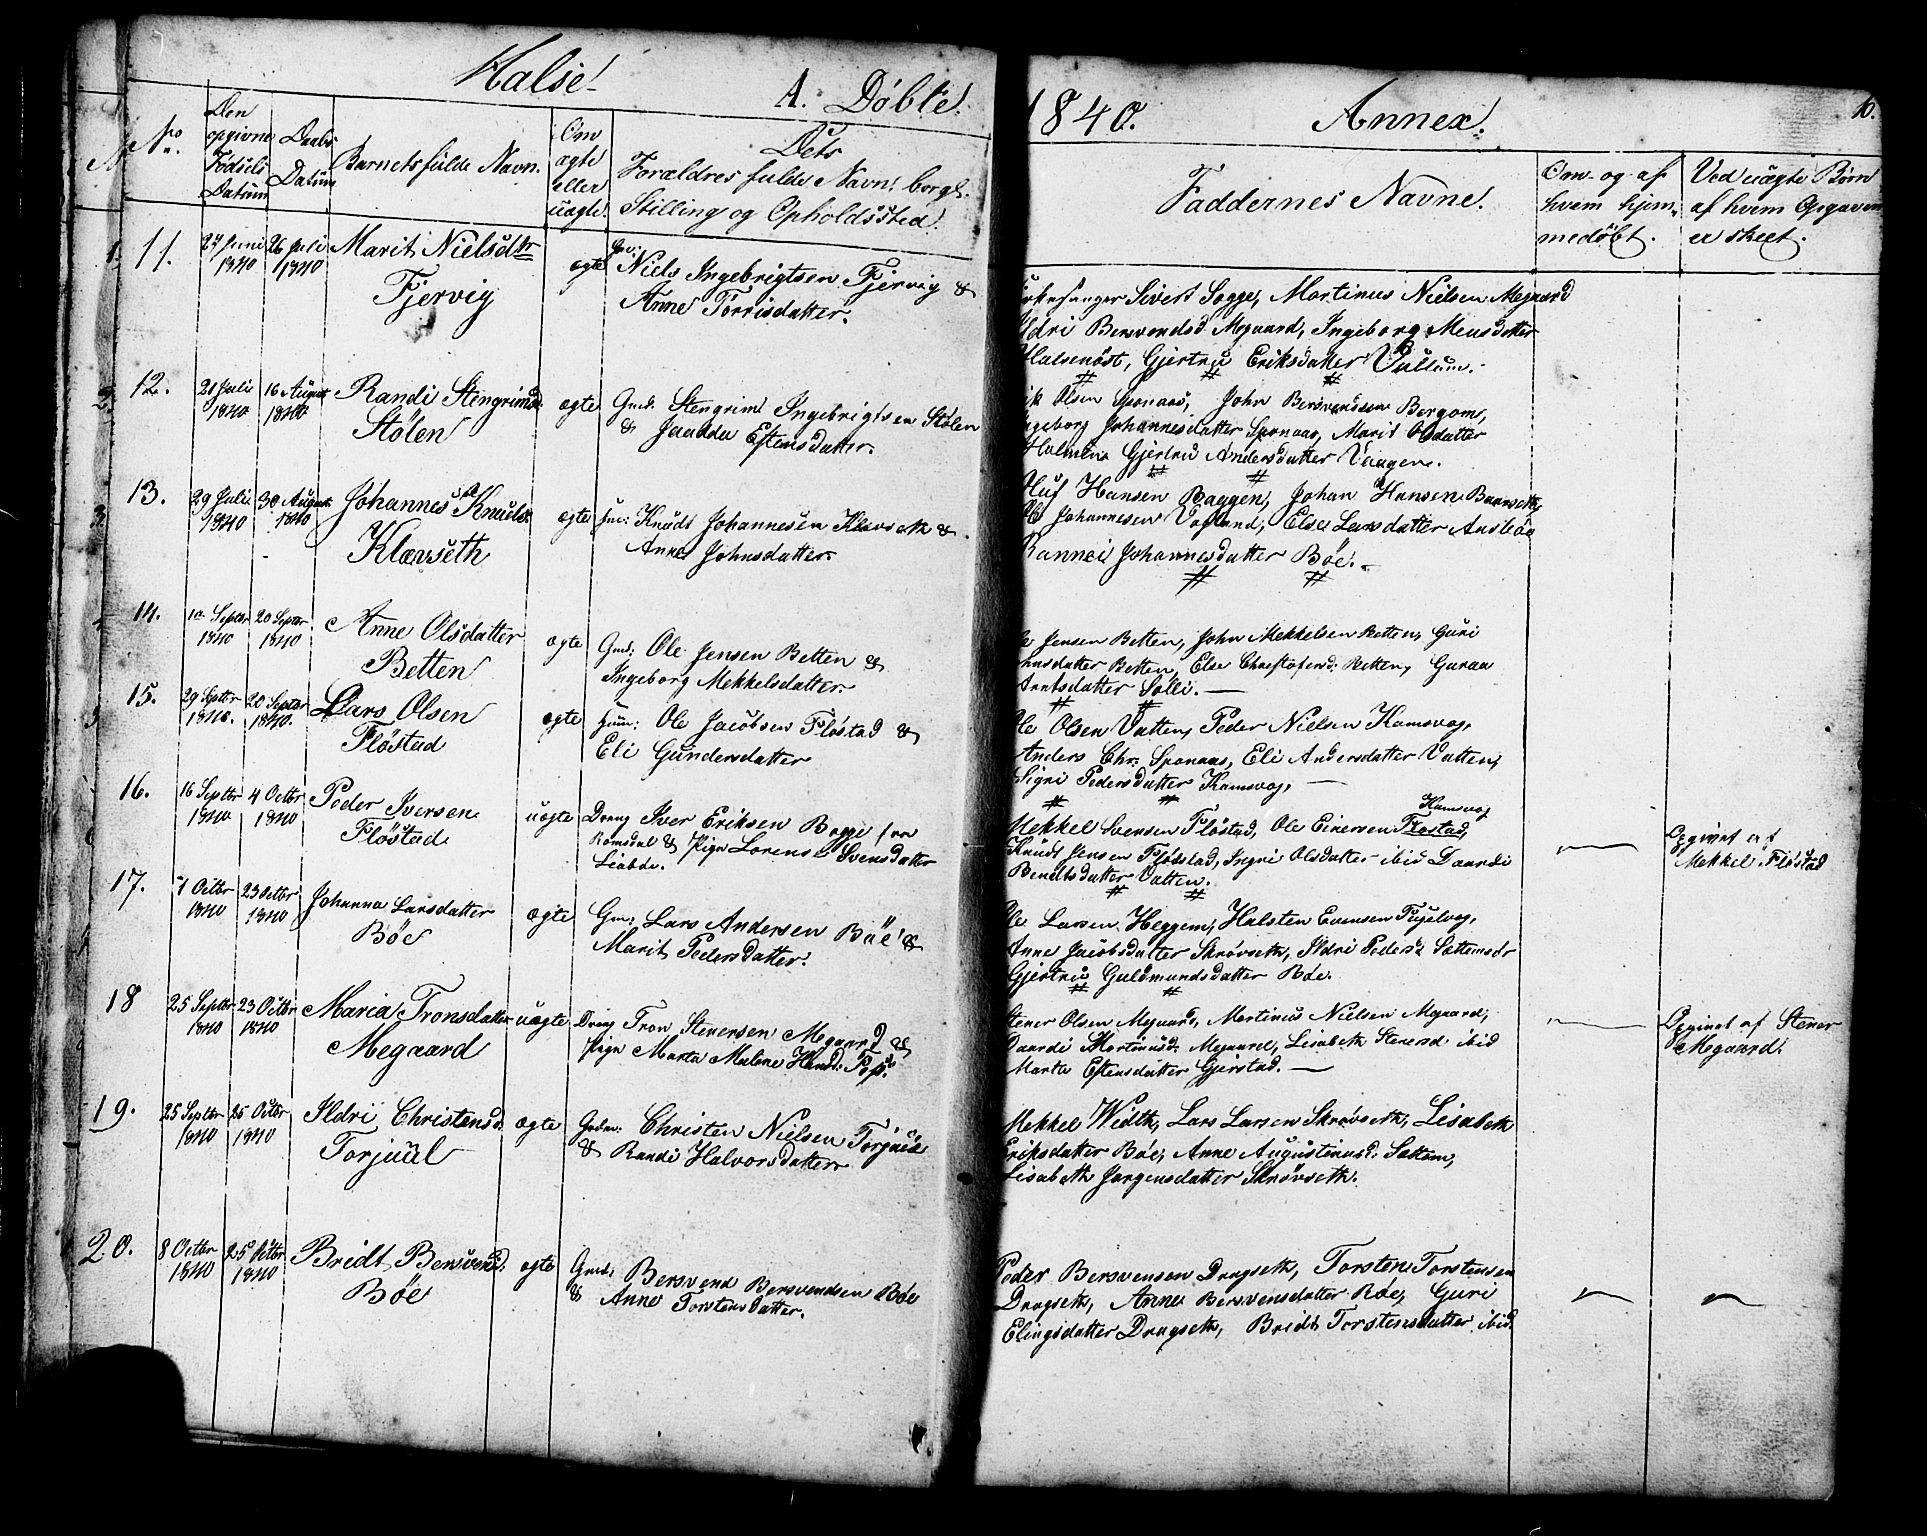 Halse
A. Døbte
1840.
Annex.
10.
No.
Den opgivne Fødsels Datum
Daabs Datum
Barnets fulde Navn.
Om ægte eller uægte.
Dets Forældres fulde Navn, borgl. Stilling og Opholdssted.
Faddernes Navne.
Om og af hvem hjemmedøbt.
Ved uægte Børn af hvem Opgaven er skeet.
11.
27 Juni 1840
26 Juli 1840
Marit Nielsdtr
Fjervig
ægte
Niels Ingebrigtsen Fjervig &
Anne Torrisdatter.
Sivert Sogge, Martinus Nielsen Megaard
Ildri Bersvendsd. Megaard, Ingeborg Monsdatter
Halsenøst, Gjertru Eriksdatter Vullum.
12.
21 Juli 1840
16 August 1840
Randi Stengrimsd.
Stølen
ægte
Gmd. Stengrim Ingebrigtsen Stølen
& Estensdatter.
Olsen Sponaas, John Bersvendsen Bergom,
Ingeborg Johannesdatter Sponaas, Marit Olsdatter
Holmen, Gjertru Andersdatter Vaagen.
13.
29 Juli 1840
30 August 1840
Johannes Knuds.
Klævseth
ægte
Knudt Johannesen Klevseth &
Anne Johnsdatter.
Oluf Hansen Baggen, Johan Hansen
Johannesen Vagland, Else Larsdatter
Rannei Johannesdatter Bøe.
14.
10 Septbr 1840
20 Septbr 1840
Anne Olsdatter
Betten
ægte
Gmd: Ole Jensen Betten &
Ingeborg Mekkelsdatter.
Jensen Betten, John Mekkelsen Betten, Guri
Betten, Else Christofersd. Betten, Guraa
Arntsdatter Solli.
15.
29 Septbr 1840.
20 Septbr 1840.
Lars Olsen
Fløstad
ægte
Huum: Ole Jacobsen Fløstad &
Eli Gundersdatter
Ole Olsen Vatten, Peder Nielsen Kamsvog,
Anders Chr. Sponaas, Eli Andersdatter Vatten,
Signi Pedersdatter Kamsvog,
16.
16 Septbr 1840
4 Octbr 1840
Peder Iversen
Fløstad
uægte
Dreng Iver Eriksen Bogge fra
Romsdal & Pige Lorense Svensdatter
Liabde.
Kamsvog
Mekkel Svensen Fløstad, Ole Einersen Fløstad,
Knudt Jensen Fløbstad, Ingri Olsdatter ibid
Bendtsdatter Vatten.
Opgivet af
Mekkel Fløstad
17.
7 Octbr 1840
23 Octbr 1840
Johanna Larsdatter
Bøe
ægte
Gm: Lars Andersen Bøe &
Marit Pedersdatter.
Ole Larsen Heggem, Halsten Evensen Fugelvog,
Anne Jacobsdatter Skrøvseth, Ildri Pedersd. Settemsør
Gjertru Guldmundsdatter Bøe.
18
25 Septbr 1840
23 Octbr 1840
Maria Tronsdatter
Megaard
uægte
Dreng Tron Stenersen Megaard &
Pige Marta Malene Hansd.
Stener Olsen Megaard, Martinus Nielsen Megaard,
Martinusd. Megaard, Lisabeth Stenersd ibid
Marta Estensdatter Gjerstad.
Opgivet af Stener
Megaard.
19.
25 Septbr 1840
25 Octbr 1840
Ildri Christensd.
Torjuul
ægte
Christen Nielsen Torjuul
& Randi Halvorsdatter
Mekkel Width, Lars Larsen Skrøvseth, Lisabeth
Eriksdatter Bøe, Anne Augustinusd. Settem,
Lisabeth Jørgensdatter Skrøvseth.
20.
8 Octbr 1840
25 Octbr 1840
Bridt Bersvend.
Bøe
ægte
Gmd: Bersvend Bersvendsen Bøe
& Anne Torstensdatter.
Peder Bersvensen Drugseth, Torsten Torstensen
Drugseth, Anne Bersvensdatter Bøe, Guri
Elingsdatter Drugseth, Bridt Torstensdatter ibid